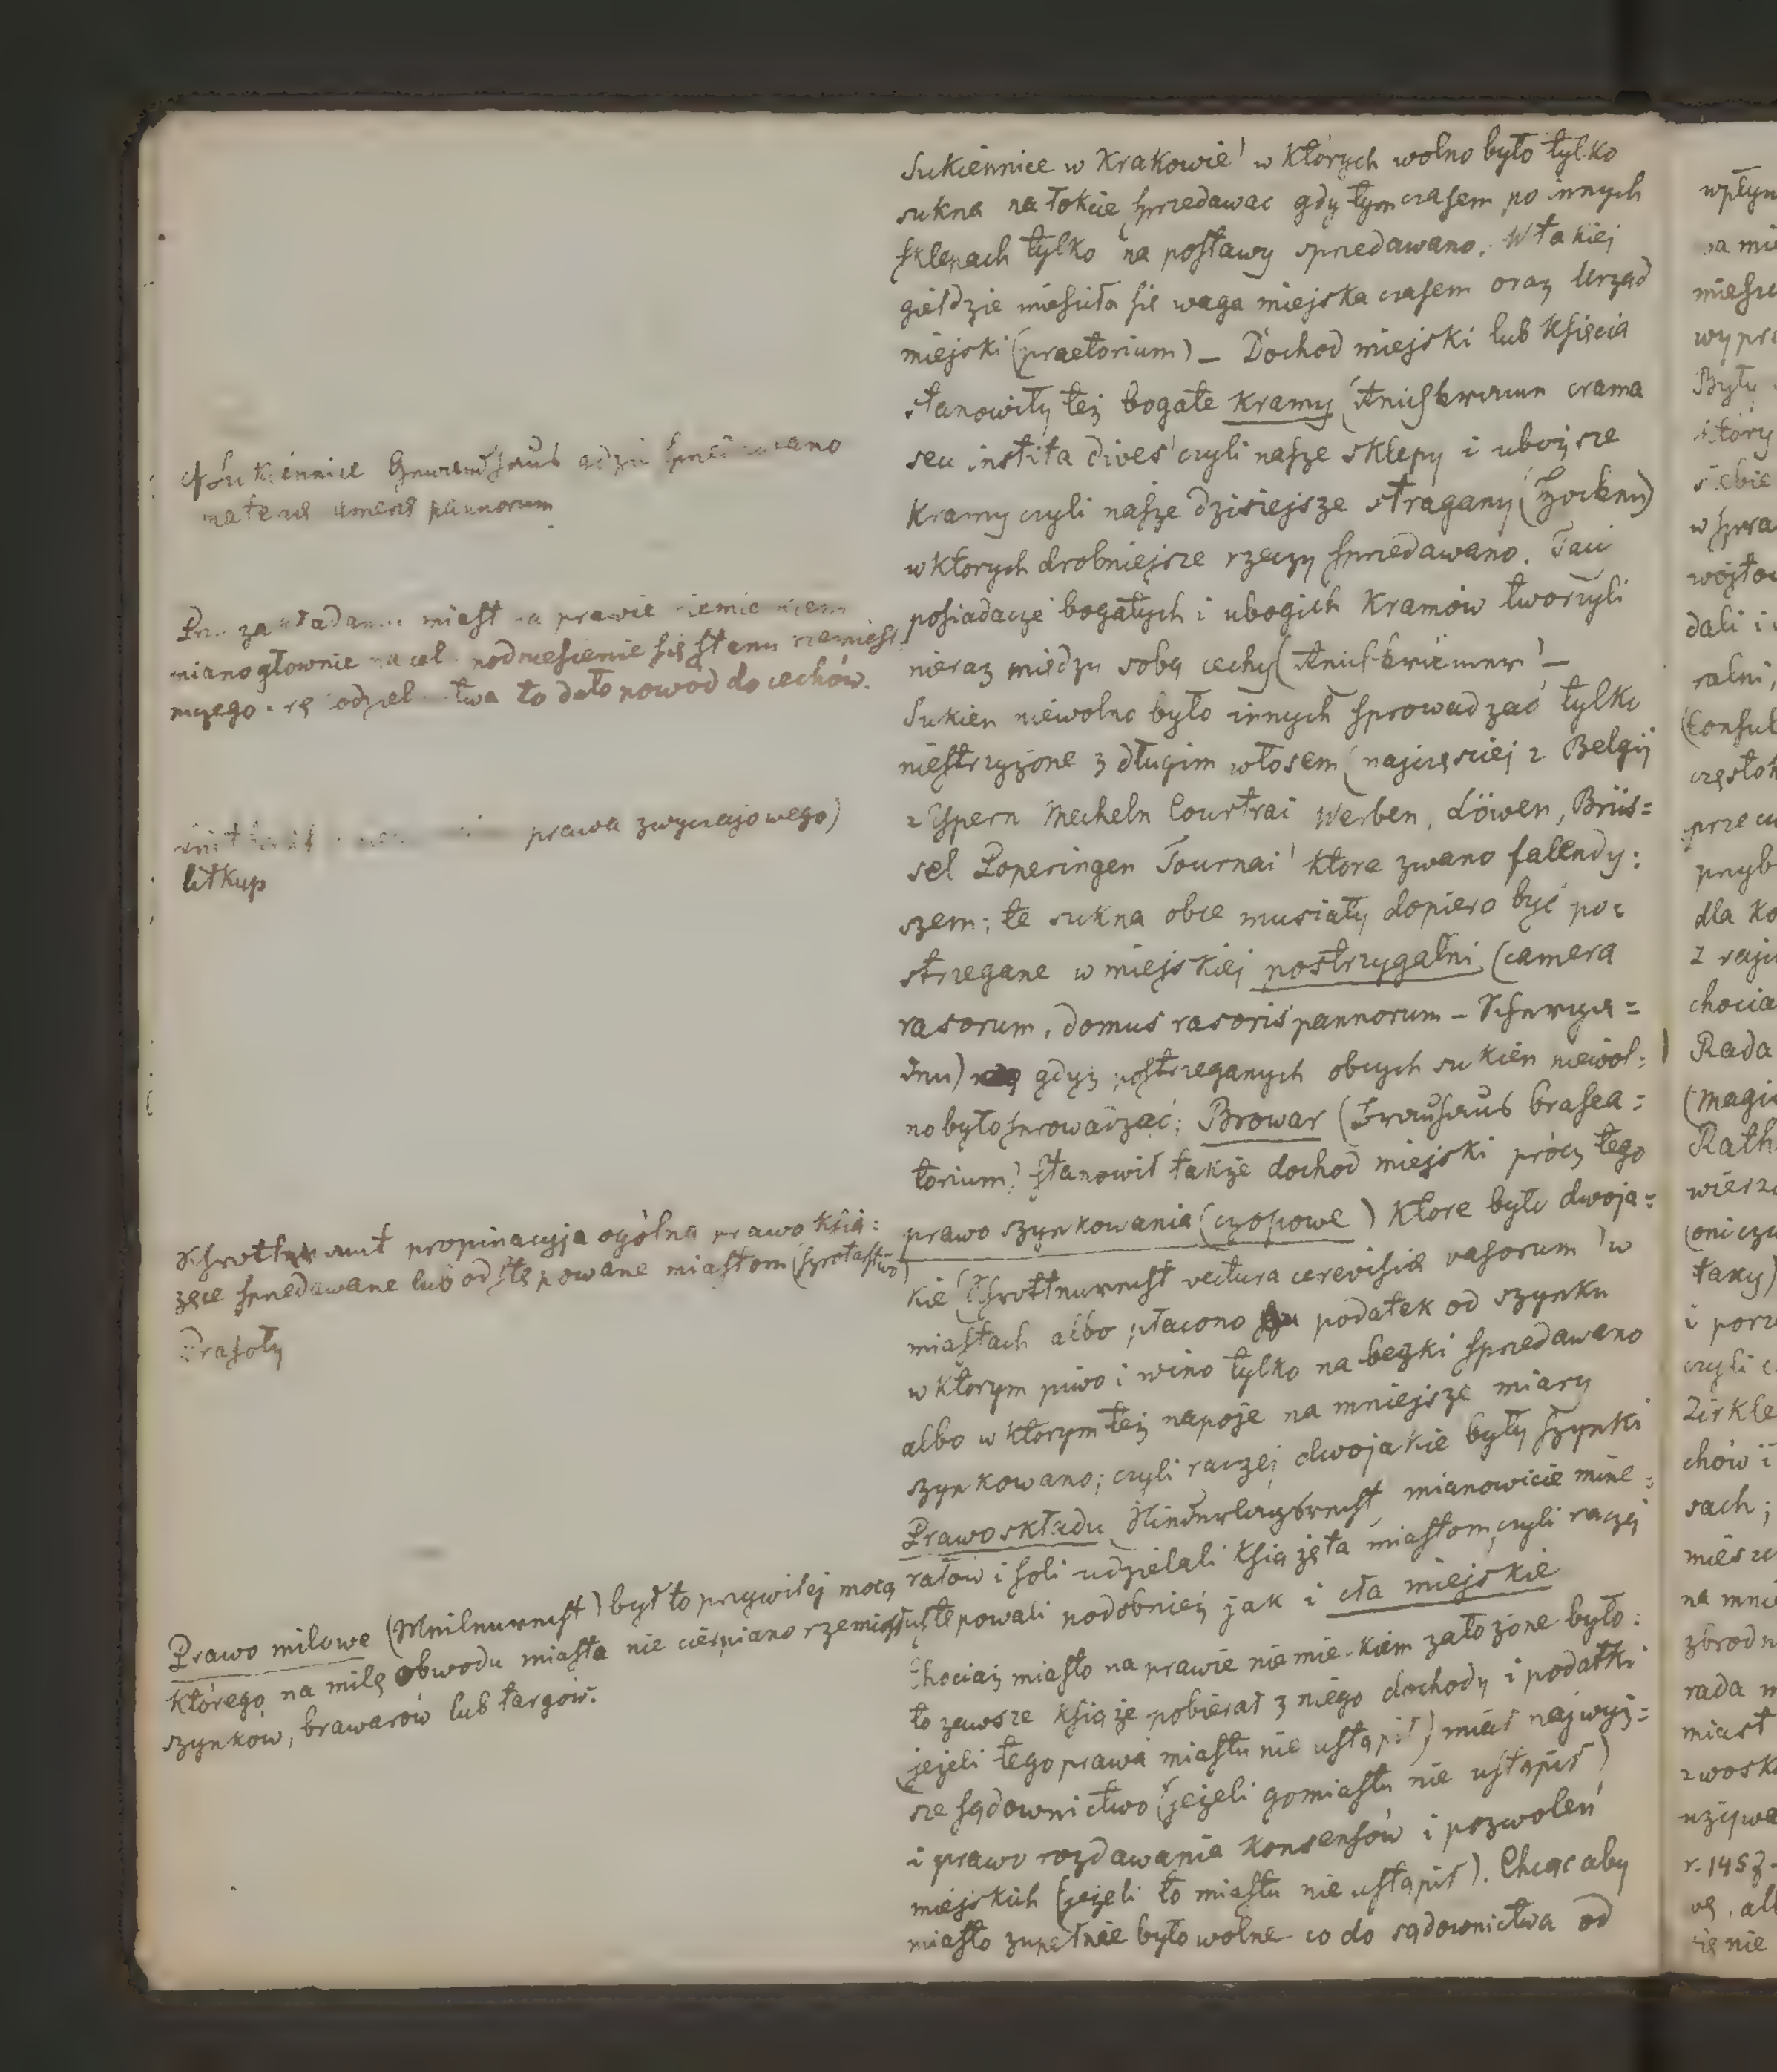 Sukiennice w Krakowie) w których wolno było tylko
sukna na łokcie sprzedawac gdy tymczasem po innych
sklepach tylko na postawy sprzedawano. W takiej
giełdzie mieściła się waga miejska czasem oraz Urząd
miejski (praetorium) – Dochod miejski lub Księcia
stanowiły też bogate kramy (Reichkramen crama
seu instita dives) czyli nasze sklepy i uboższe
kramy czyli nasze dzisiejsze stragany
w których drobniejsze rzeczy sprzedawano. Taci
posiadacze bogatych i ubogich kramów tworzyli
nieraz miedzy sobą cechy (Reichkrämer) –
Sukien niewolno było innych sprowadzać tylko
niestrzyżone z długim włosem (najczęsciej z Belgij
z Ypern Mecheln Courtrai Werben, Löwen, Brüs=
sel Poperingen Tournai) ktore zwano falendy:
szem; te sukna obce musiały dopiero być po=
strzegane w miejskiej postrzygalni (camera
rasorum, domus rasoris pannorum –
gdyż postrzeganych obcych sukien niewol:
no było sprowadzać; Browar (Brauhaus brasea=
torium) stanowił także dochod miejski prócz tego
prawo szynkowania (czopowe) ktore było dwoja=
kie (vectura cerevisiae vasorum) w
miastach albo płacono podatek od szynku
w ktorym piwo i wino tylko na beczki sprzedawano
albo w ktorym też napoje na mniejsze miary
szynkowano; czyli raczej dwojakie były szynki
Prawo składu Niederlagsrecht, mianowicie mine=
rałów i soli udzielali książęta miastom czyli raczej
ustępowali podobnież jak i cła miejskie
Chociaż miasto na prawie niemieckiem założone było:
to zawsze książe pobierał z niego dochody i podatki
(jeżeli tego prawa miastu nie ustąpił) miał najwyż=
sze sądownictwo (jeżeli go miastu nie ustąpił)
i prawo rozdawania konsensów i pozwoleń
miejskich (jeżeli to miastu nie ustąpił). Chcąc aby
miasto zupełnie było wolne co do sądownictwa od
Sukiennice Gewandhaus gdzie sprzedawano
pannorum
zakładaniu miast na prawie niemieckiem
miano głownie na celu podniesienie się stanu rzemieśl
to dało powod do cechów.
prawa zwyczajowego)
litkup
propinacyja ogólna prawo ksią:
żęce sprzedawane lub odstępowane miastom (szrotarstwo)
Prasoły
Prawo milowe (Meilenrecht) był to przywilej mocą
którego na milę obwodu miasta nie cierpiano rzemiosł
szynków, browarów lub targów.
Rada
dali i
dla
rada
miast
r. 145